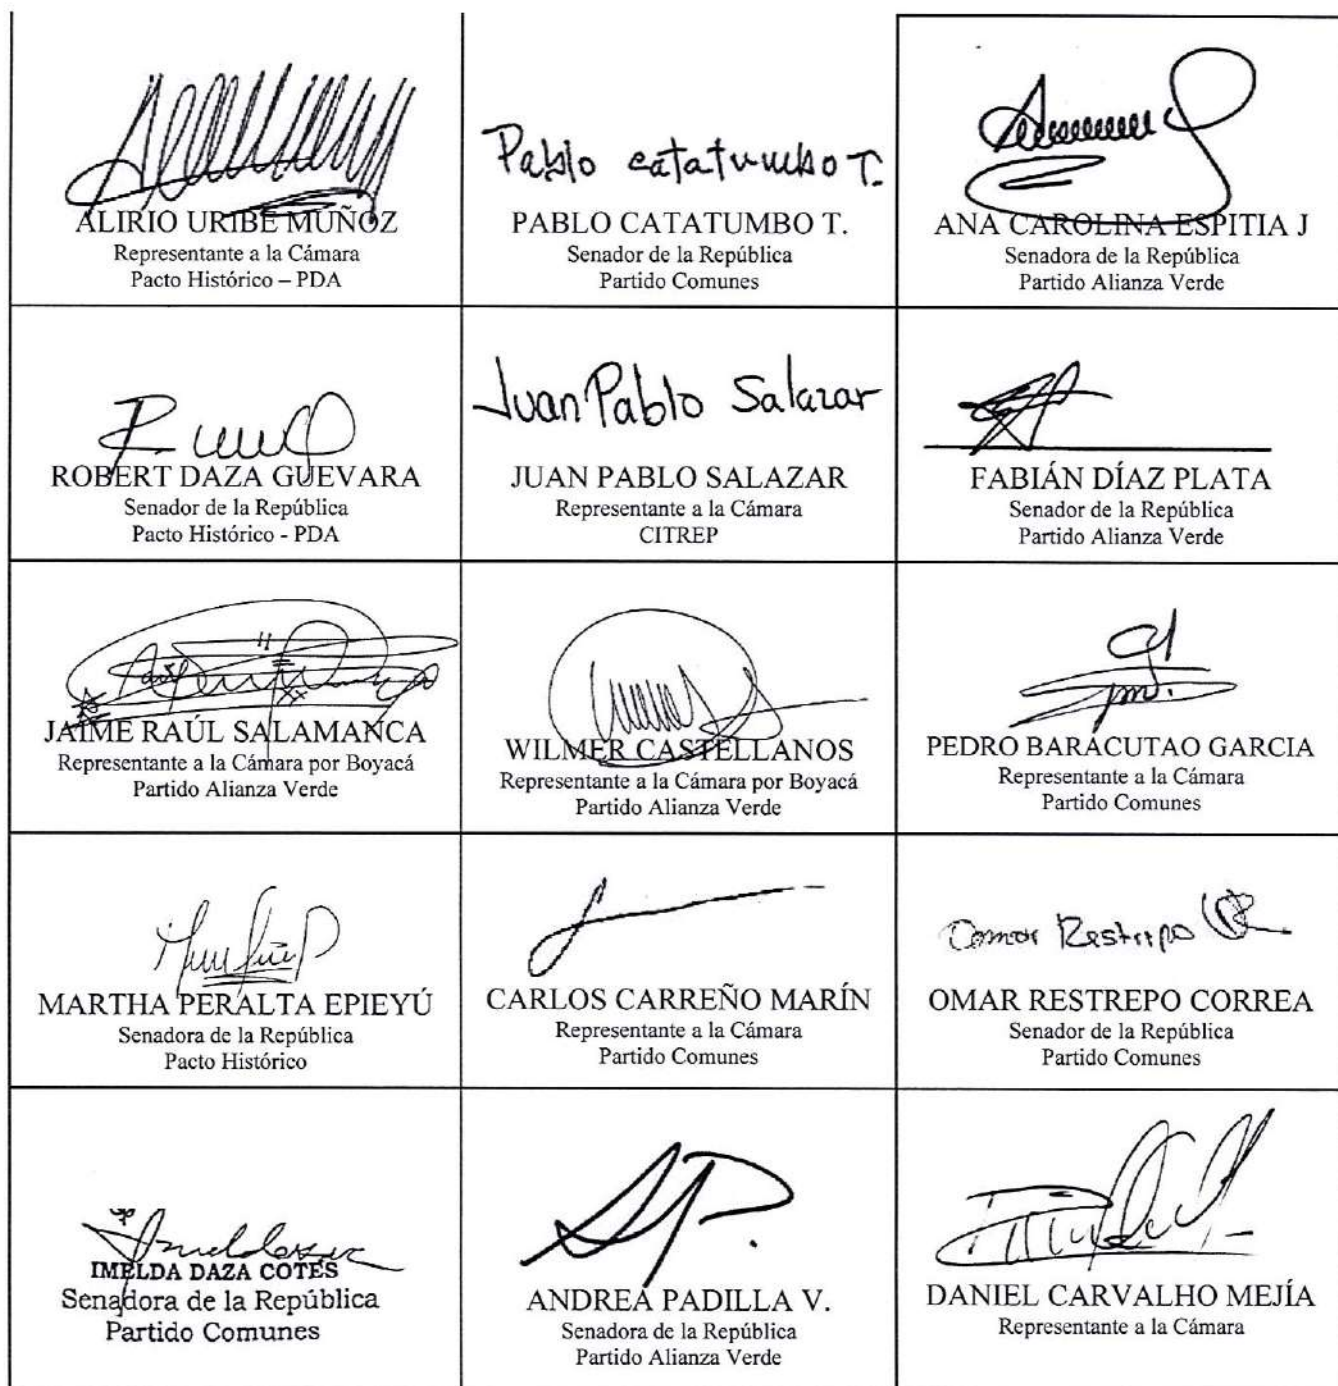 Pablo catatumbo T.
ALIRIO URIBE MUÑOZ
Representante a la Cámara
Pacto Histórico – PDA
PABLO CATATUMBO T.
Senador de la República
Partido Comunes
ANA CAROLINA ESPITIA J
Senadora de la República
Partido Alianza Verde
ROBERT DAZA GUEVARA
Senador de la República
Pacto Histórico - PDA
Juan Pablo Salazar
JUAN PABLO SALAZAR
Representante a la Cámara
CITREP
FABIÁN DÍAZ PLATA
Senador de la República
Partido Alianza Verde
JAIME RAÚL SALAMANCA
Representante a la Cámara por Boyacá
Partido Alianza Verde
WILMER CASTELLANOS
Representante a la Cámara por Boyacá
Partido Alianza Verde
PEDRO BARACUTAO GARCIA
Representante a la Cámara
Partido Comunes
MARTHA PERALTA EPIEYÚ
Senadora de la República
Pacto Histórico
CARLOS CARREÑO MARÍN
Representante a la Cámara
Partido Comunes
Omar Restrepo
OMAR RESTREPO CORREA
Senador de la República
Partido Comunes
IMELDA DAZA COTES
Senadora de la República
Partido Comunes
ANDREA PADILLA V.
Senadora de la República
Partido Alianza Verde
DANIEL CARVALHO MEJÍA
Representante a la Cámara